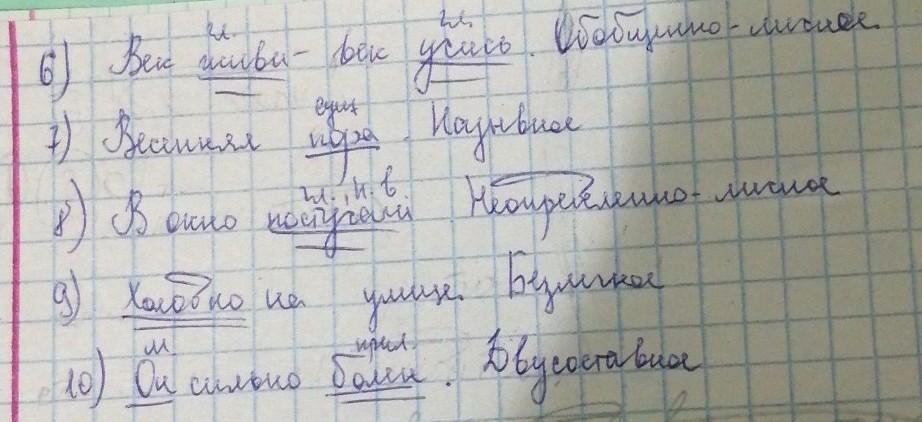 гл. гл.
6) Век живи - век учись. Обобщенно-личное
сущ
7) Весенняя пора. Назывное
гл., п. в
8) В окно постучали Неопределенно-личное
9) Холодно на улице. Безличное
м прил
10) Он сильно болен. Двусоставное